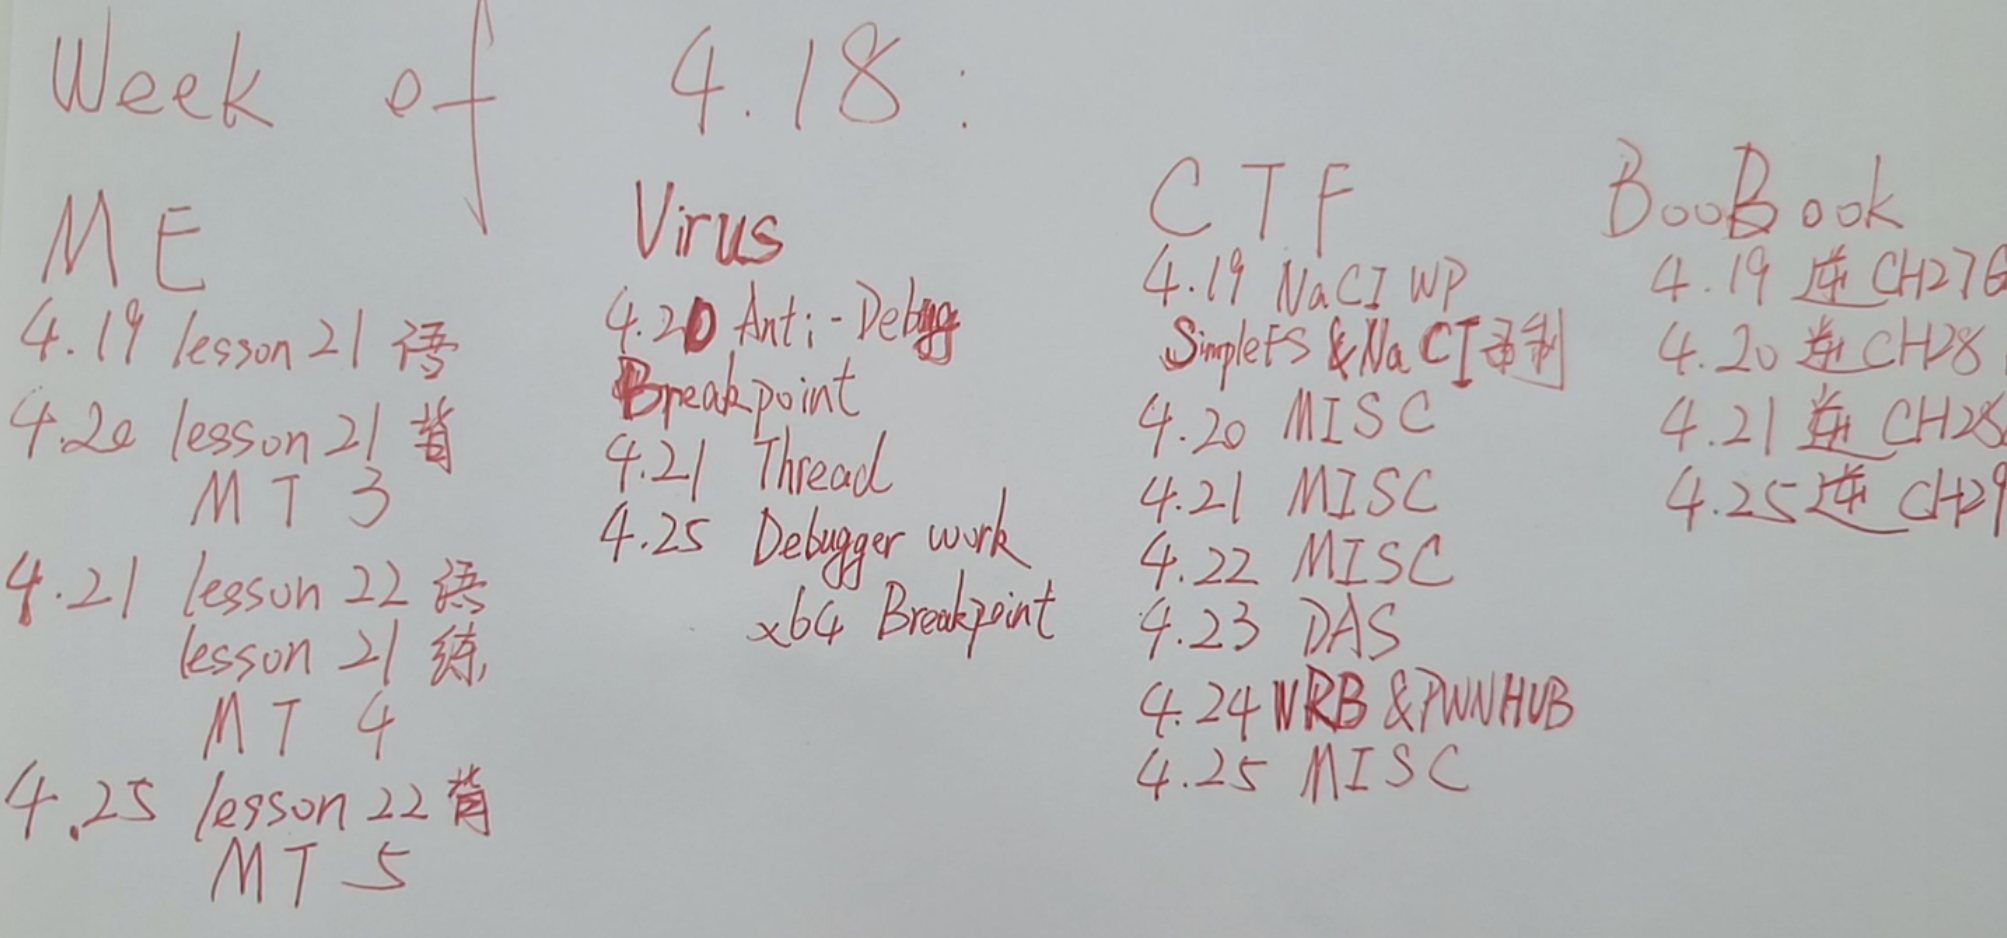 Week of 4.18:
ME
4.19 lesson 21 语
4.20 lesson 21 背
MT 3
4.21 lesson 22 语
lesson 21 练
MT 4
4.25 lesson 22 背
MT 5
Virus
4.20 Anti-Debug
Breakpoint
4.21 Thread
4.25 Debugger work
x64 Breakpoint
CTF
4.19 NaCI WP
SimpleFS & NaCI 录制
4.20 MISC
4.21 MISC
4.22 MISC
4.23 DAS
4.24 WRB & PWNHUB
4.25 MISC
BooBook
4.19 逆 CH27
4.20 逆 CH28
4.21 逆 CH28
4.25 逆 CH29